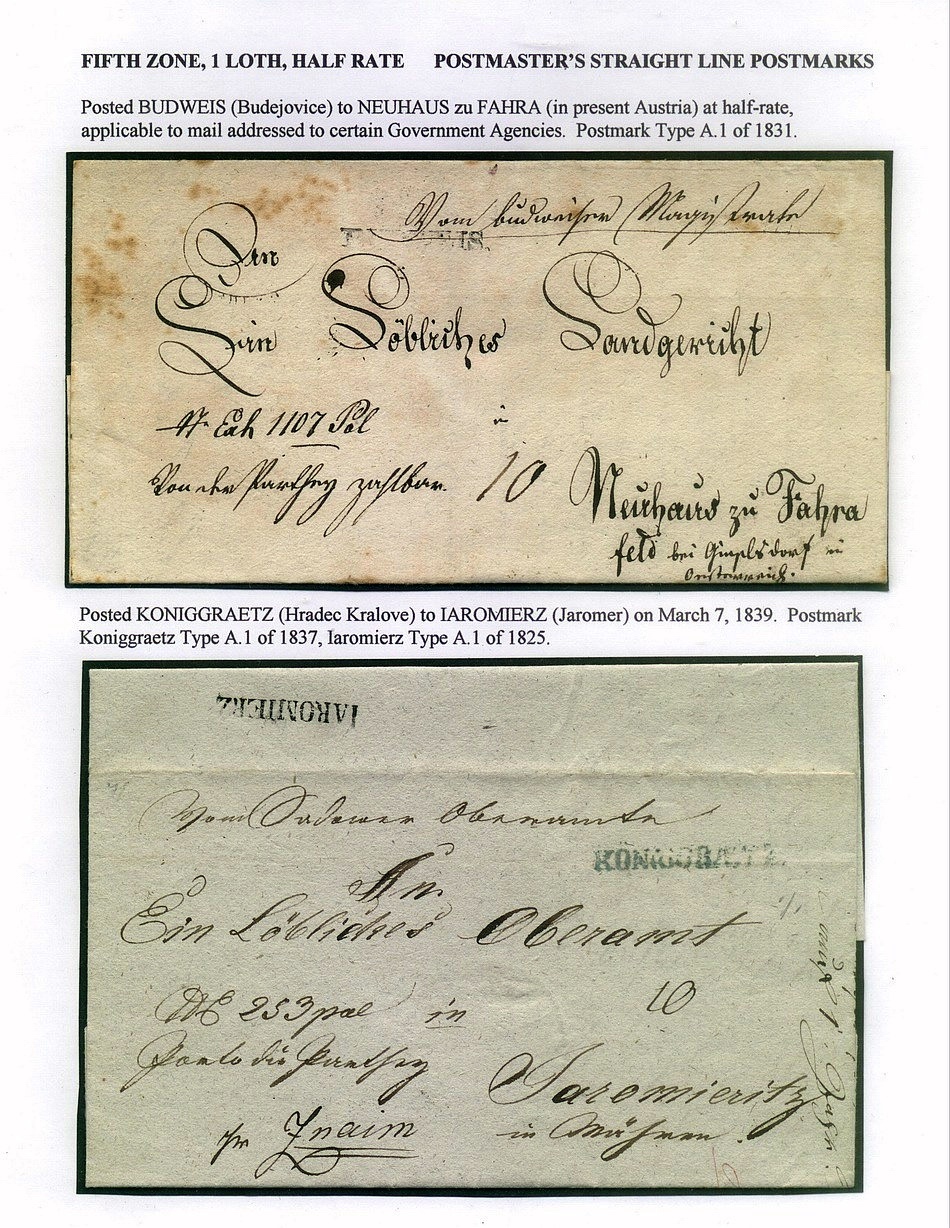 FIFTH ZONE, 1 LOTH, HALF RATE POSTMASTER'S STRAIGHT LINE POSTMARKS
Posted BUDWEIS (Budejovice) to NEUHAUS zu FAHRA (in present Austria) at half-rate,
applicable to mail addressed to certain Government Agencies. Postmark Type A.1 of 1831.
Vom budweiser Magistrate
An
Ein Löbliches Landgericht
Exh 1107 Pol
in
Von der Parthey zahlbar. 10 Neuhaus zu Fahra
feld bei Gimpelsdorf in
Oesterreich.
Posted KONIGGRAETZ (Hradec Kralove) to IAROMIERZ (Jaromer) on March 7, 1839. Postmark
Koniggraetz Type A.1 of 1837, Iaromierz Type A.1 of 1825.
IAROMIERZ
Vom Sadower Oberamte
KÖNIGGRAETZ.
An
Ein Löbliches Oberamt
NE 253 pol in 10
Porto die Parthey
Jaromieritz
pr Znaim in Mähren.